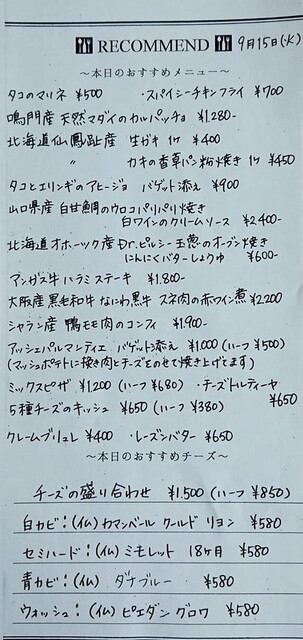 RECOMMEND 9月15日(火)
〜本日のおすすめメニュー〜
タコのマリネ ¥500 ・スパイシーチキンフライ ¥700
鳴門産 天然マダイのカルパッチョ ¥1,280-
北海道仙鳳趾産 生ガキ 1ヶ ¥400
〃 カキの香草パン粉焼き 1ヶ ¥450
タコとエリンギのアヒージョ バゲット添え ¥900
山口県産 白甘鯛のウロコパリパリ焼き
白ワインのクリームソース ¥2,400-
北海道オホーツク産 Dr.ピルシー玉葱のオーブン焼き
にんにくバターしょうゆ ¥600-
アンガス牛ハラミステーキ ¥1,800-
大阪産黒毛和牛 なにわ黒牛 スネ肉の赤ワイン煮 ¥2,200
シャラン産 鴨モモ肉のコンフィ ¥1,900-
アッシェパルマンティエ バゲット添え ¥1,000 (ハーフ ¥500)
(マッシュポテトに挽き肉とチーズをのせて焼き上げてます)
ミックスピザ ¥1,200 (ハーフ ¥680) ・チーズトルティーヤ
¥650
5種チーズのキッシュ ¥650 (ハーフ ¥380)
クレームブリュレ ¥400 ・レーズンバター ¥650
〜本日のおすすめチーズ〜
チーズの盛り合わせ ¥1,500 (ハーフ ¥850)
白カビ：(仏) カマンベール クールド リヨン ¥580
セミハード：(仏) ミモレット 18ヶ月 ¥580
青カビ：(仏) ダナブルー ¥580
ウォッシュ：(仏) ピエダングロワ ¥580